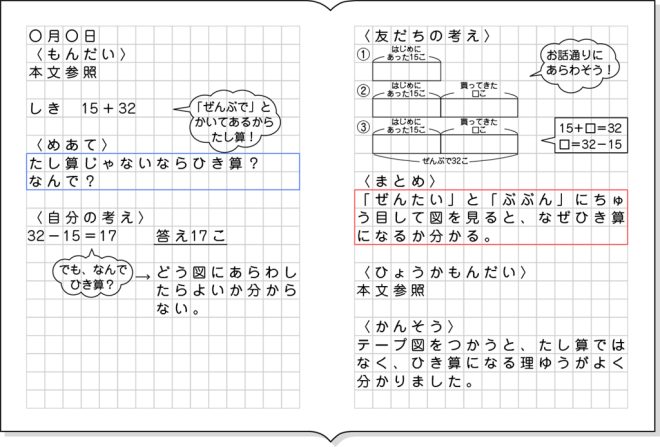 〇月〇日
〈もんだい〉
本文参照
しき 15+32
「ぜんぶで」と
かいてあるから
たし算!
〈めあて〉
たし算じゃないならひき算?
なんで?
〈自分の考え〉
32-15=17 答え17こ
でも、なんで
ひき算?
→どう図にあらわし
たらよいか分から
ない。
〈友だちの考え〉
お話通りに
あらわそう!
①
はじめに
あった15こ
②
はじめに
あった15こ
買ってきた
□こ
③
はじめに
あった15こ
買ってきた
□こ
ぜんぶで32こ
15+□=32
□=32-15
〈まとめ〉
「ぜんたい」と「ぶぶん」にちゅ
う目して図を見ると、なぜひき算
になるか分かる。
〈ひょうかもんだい〉
本文参照
〈かんそう〉
テープ図をつかうと、たし算では
なく、ひき算になる理ゆうがよく
分かりました。